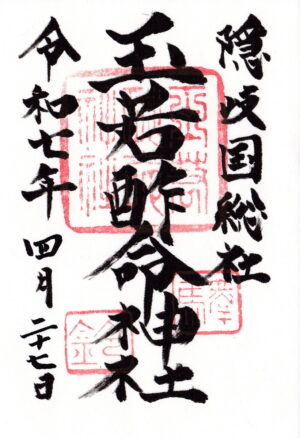 隠岐国総社
玉若酢命神社
令和七年 四月二十七日